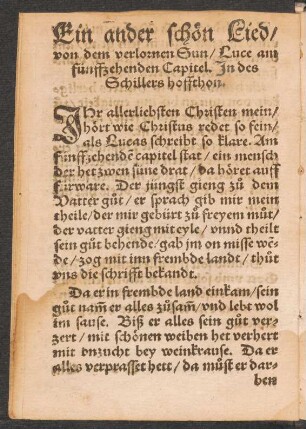 Ein ander schön Lied/
von dem verlornen Sun/ Luce am
fünffzehenden Capitel. In des
Schillers hoffthon.
IHr allerliebsten Christen mein/
hört wie Christus redet so fein/
als Lucas schreibt so klare. Am
fünffzehendē capitel stat/ ein mensch
der het zwen süne drat/ da höret auff
fürware. Der jüngst gieng zů dem
Vatter gůt/ er sprach gib mir mein
theile/ der mir gebürt zů freyem můt/
der vatter gieng mit eyle/ vnnd theilt
sein gůt behende/ gab jm on misse wē-
de/ zog mit inn frembde landt/ thůt
vns die schrifft bekandt.
Da er in frembde land einkam/ sein
gůt nam̄ er alles zůsam̄/ vnd lebt wol
im sause. Biß er alles sein gůt ver-
zert/ mit schönen weiben het verhert
mit vnzucht bey weinkrause. Da er
alles verprasset hett/ da můst er dar-
ben